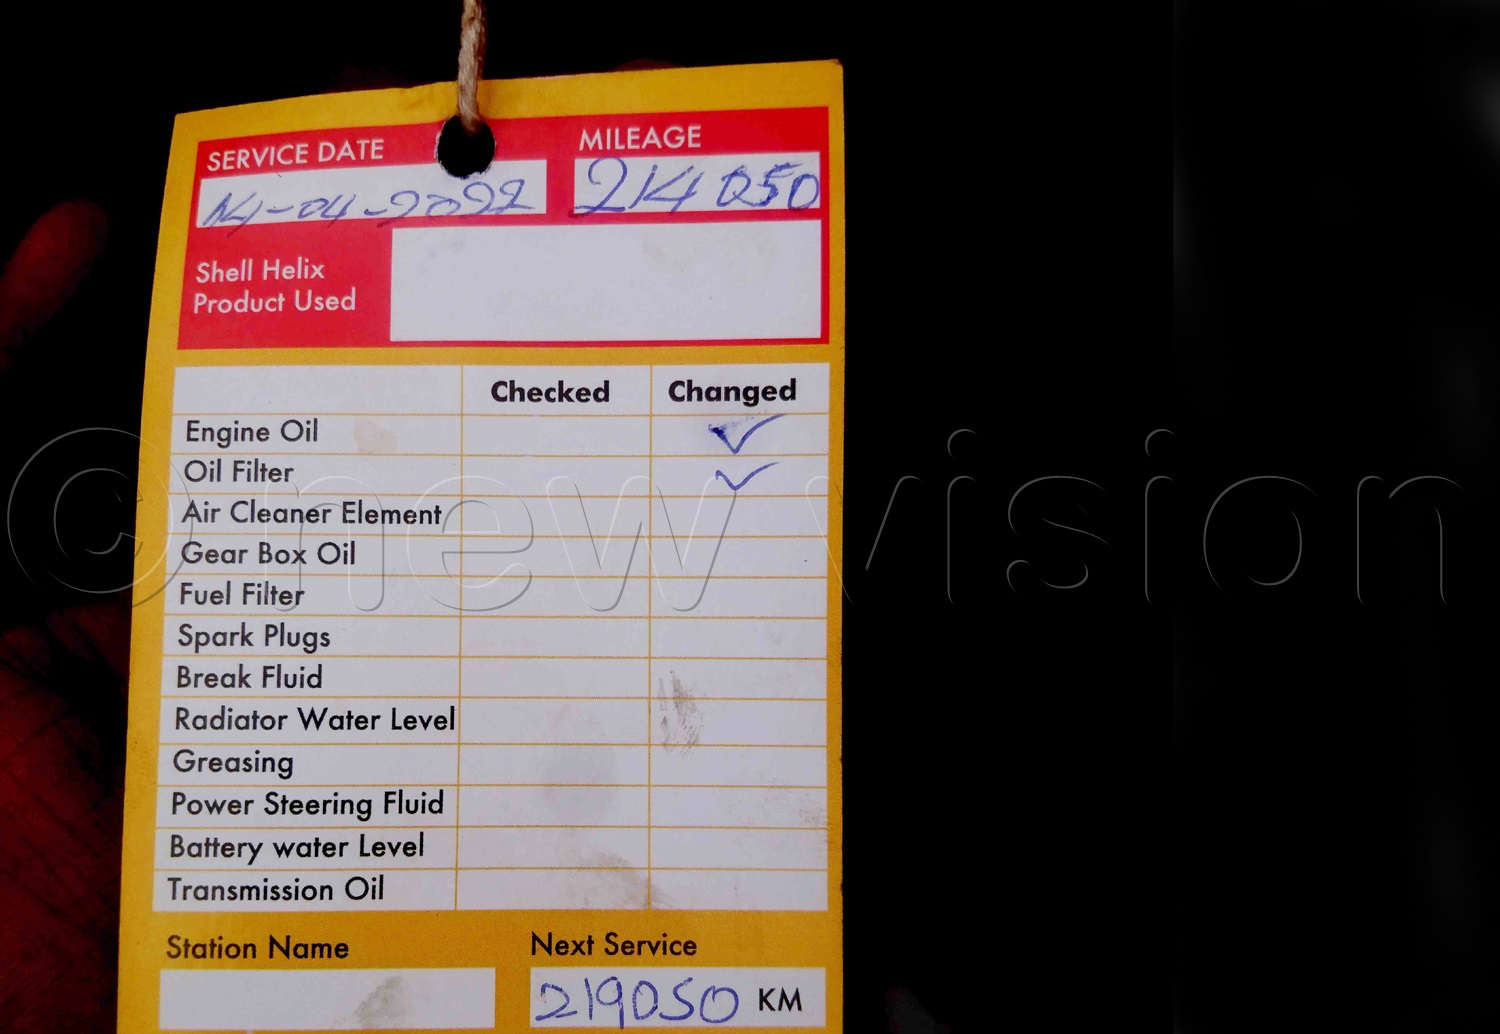 SERVICE DATE
MILEAGE
14-04-2022
214050
Shell Helix
Product Used
Checked Changed
Engine Oil ✓
Oil Filter ✓
Air Cleaner Element
Gear Box Oil
Fuel Filter
Spark Plugs
Break Fluid
Radiator Water Level
Greasing
Power Steering Fluid
Battery water Level
Transmission Oil
Station Name
Next Service
219050 KM
© new vision